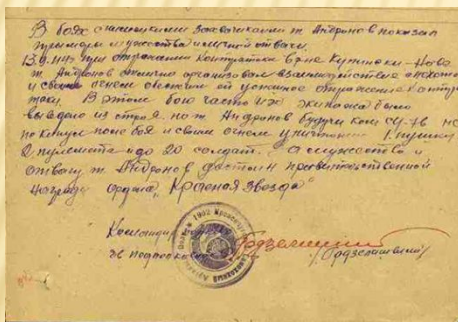 В боях с немецкими захватчиками т. Андронов показал
примеры мужества и личной отваги.
13.9.44г при отражении контратаки в р-не
т. Андронов отлично организовал взаимодействие с пехотой
и своим огнем обеспечил ей успешное отражение контр
атаки. В этом бою часть его экипажа была
выведена из строя, но т. Андронов будучи ком СУ-76 не
покинул поле боя и своим огнем уничтожил 1 пушку
2 пулемета и до 20 солдат. За мужество и
отвагу т. Андронов достоин правительственной
награды ордена "Красная Звезда"
Командир
гв подполковник